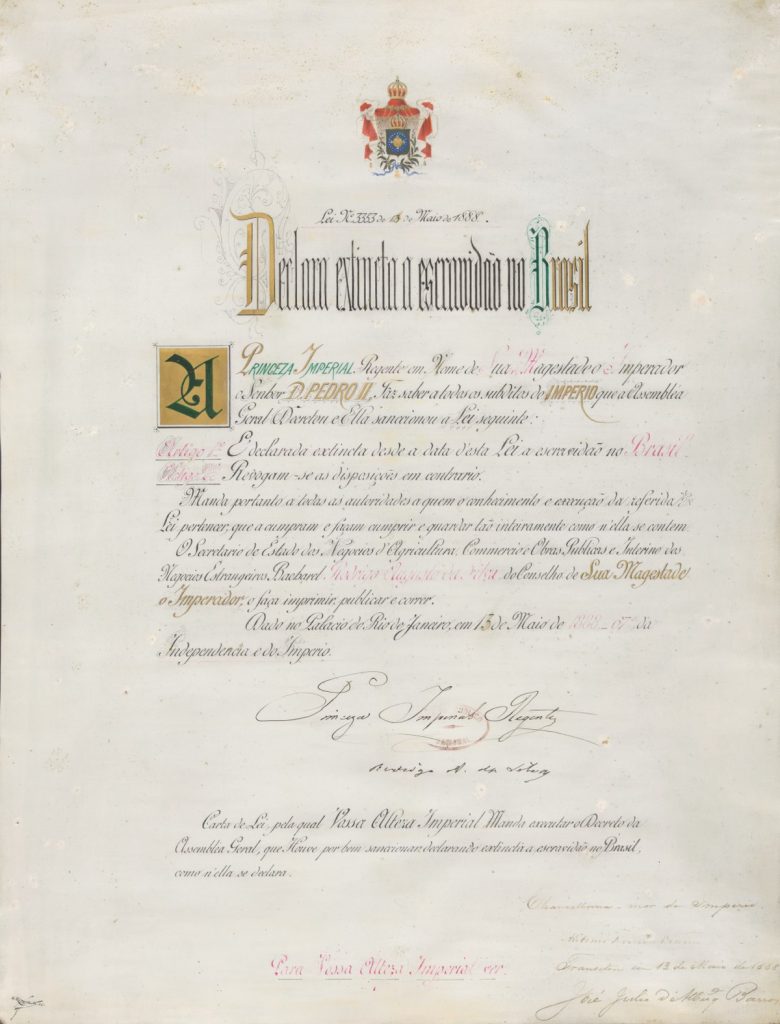 Lei Nº 3353 de 13 de Maio de 1888.
Declara extincta a escravidão no Brasil
A PRINCEZA IMPERIAL Regente em Nome de Sua Magestade o Imperador
o Senhor D. PEDRO II, Faz saber a todos os subditos do IMPERIO que a Assembléa
Geral Decretou e Ella sanccionou a Lei seguinte:
Artigo 1º É declarada extincta desde a data d'esta Lei a escravidão no Brasil.
Artigo 2º Revogam-se as disposições em contrario.
Manda portanto a todas as autoridades a quem o conhecimento e execução da referida
Lei pertencer, que a cumpram e façam cumprir e guardar tão inteiramente como n'ella se contem.
O Secretario de Estado dos Negocios d'Agricultura, Commercio e Obras Publicas e Interino dos
Negocios Estrangeiros, Bacharel Rodrigo Augusto da Silva, do Conselho de Sua Magestade
o Imperador, o faça imprimir, publicar e correr.
Dado no Palacio do Rio de Janeiro, em 13 de Maio de 1888 - 67º da
Independencia e do Imperio.
Princeza Imperial Regente
Rodrigo A. da Silva
Carta de Lei, pela qual Vossa Alteza Imperial Manda executar o Decreto da
Assembléa Geral, que Houve por bem sanccionar, declarando extincta a escravidão no Brasil,
como n'ella se declara.
Para Vossa Alteza Imperial ver.
Chancellaria-mór do Imperio.
Transitou em 13 de Maio de 1888
José Julio d'Albuqᵉ Barros